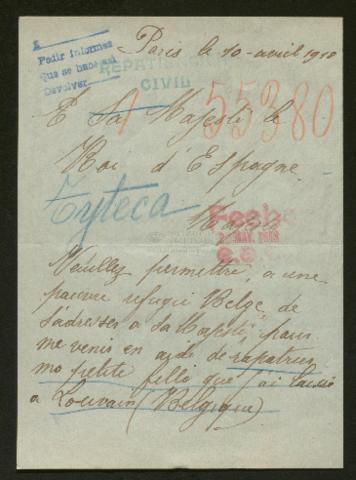 Paris le 10 avril 1918
Pedir informes
Que se hace así
Devolver
REPATRIA
CIVIL
55380
A Sa Majesté le
Roi d'Espagne
Zyteca
Madrid
Fecha
MAY. 1918
Veuillez permettre, a une
pauvre refugie Belge, de
s'adresser a sa Majesté, pour
me venir en aide de rapatrier
mo petite fille que j'ai laissé
a Louvain (Belgique)